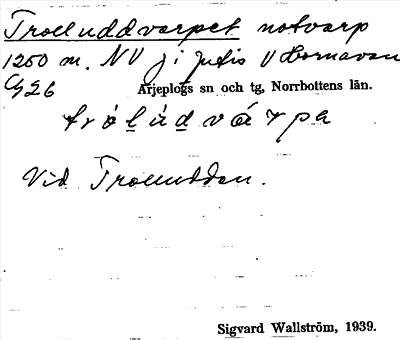 Trolluddvarpet notvarp
1250 m. NV j i Jutis V Hornavan
G26
Arjeplogs sn och tg, Norrbottens län.
trólùdvárpa
Vid Trolludden.
Sigvard Wallström, 1939.